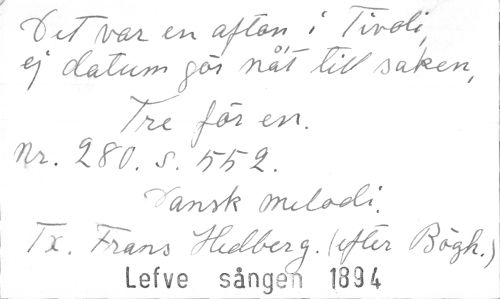 Det var en afton i Tivoli,
ej datum gör nåt till saken,
Tre för en.
Nr. 280. s. 552.
Dansk melodi.
Tx. Frans Hedberg. (efter Bögh.)
Lefve sången 1894